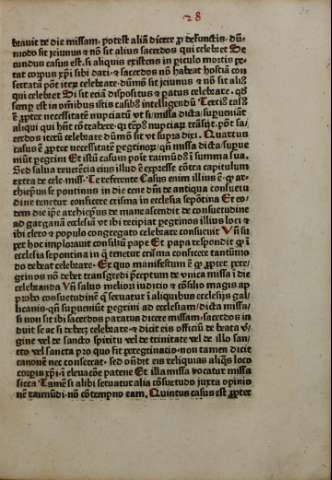 28
brauit de die missam. potest aliã dicere ꝓ defunctis. dũ
modo sit ieiunus ⁊ nõ sit alius sacerdos qui celebret Se
cundus casus est. si aliquis existens in ꝑiculo mortis pe
tat corpus xp̃i sibi dari. ⁊ sacerdos nõ habeat hostiã con
secratã põt iteꝝ celebrare. dũmõ sit ieiunus ⁊ nõ sit aliꝰ
qui celebret Et sit etiã dispositus ⁊ patus celebrare. qď
semp̱ est in omnibus istis casibꝰ intelligendũ Terciꝰ casꝰ
ẽ ꝓpter necessitatẽ nuptiatũ ut si missa dicta supueniãt
aliqui qui hñt cõtrahere. qꝛ tp̃us nuptiaꝝ trãsit. põt sa
cerdos iterũ celebrare dũmõ sit ut supra dixi. Quartus
casus ẽ ꝓpter necessitatẽ pegrinoꝝ. qñ missa dicta supue
niũt pegrini Et istũ casum poĩt raimũdꝰ ĩ summa sua.
Sed salua reuerẽcia eius illud ẽ expresse cõtra capitulum
extra de cele. miss. Te referente Casus enim illius ẽ qꝛ ar
chiep̃us se pontinus in die cene dñi de antiqua consuetu
dine tenetur conficere crisma in ecclesia sepõtina Et eo
dem die ip̃e archiep̃us de mane ascendit de consuetudine
ad garganã ecclesiã ut ibi recipiat pegrinos illius loci ⁊
ibi clero ⁊ populo congregato celebrare consueuit Vñ su
per hoc implorauit consiliũ pape Et papa respondit qꝛ ĩ
ecclesia sepontina in q̃ tenetur crisma conficere tantũmo
do debeat celebrare. Et quo manifestum ẽ qꝛ ꝓpter pere
grinos nõ debet transgredi p̃ceptum de vnica missa ĩ die
celebranda Vñ saluo meliori iudicio ⁊ cõsilio magis ap
probo consuetudinẽ q̃ seruatur ĩ aliquibus ecclesijs gal
licanis. qñ supueniũt pegrini ad ecclesiam / dicta missa /
si non sit ibi sacerdos paratus dicere missam. sacerdos in
duit se ac si deberꝫ celebrare ⁊ dicit eis officiũ de beata v̈
gine vel de sancto spiritu vel de trinitate vel de illo san/
cto vel sancta pro quo fit peregrinatio. non tamen dicit
canonẽ nec consecrat. sed oñdit eis reliquias aliq̃s loco
corꝑis xp̃i. ĩ eleuacõne patene Et illa missa vocatur missa
sicca Tamẽ si alibi seruatur alia cõsuetudo iuxta opinio
nẽ raimũdi. nõ cõtempno eam. Quintus casus est ꝓpter